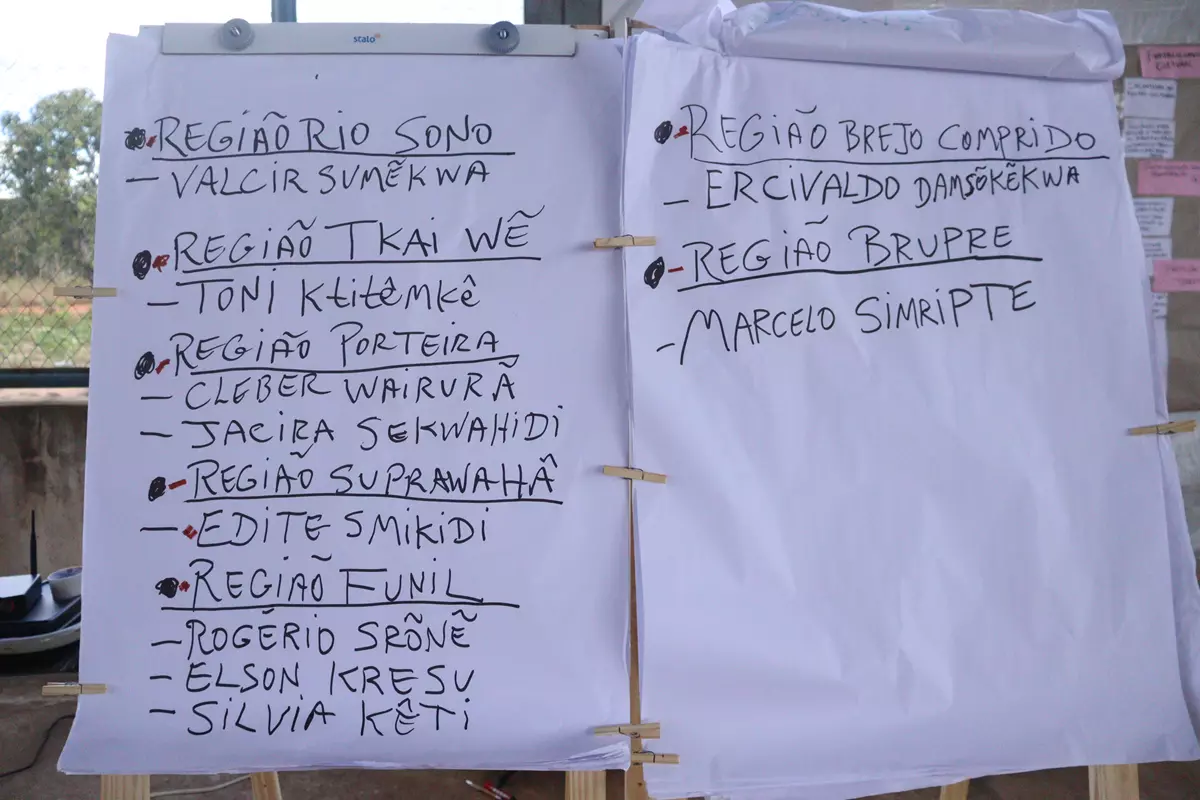 stalo
REGIÃO RIO SONO
– VALCIR SUMẼKWA
REGIÃO TKAI WẼ
– TONI Ktitêmkê
REGIÃO PORTEIRA
– CLEBER WAIRURÃ
– JACIRA SEKWAHIDI
REGIÃO SUPRAWAHÂ
– EDITE SMIKIDI
REGIÃO FUNIL
– ROGÉRIO SRÕNẼ
– ELSON KRESU
– SILVIA KÊTI
REGIÃO BREJO COMPRIDO
– ERCIVALDO DAMSÕKẼKWA
REGIÃO BRUPRE
– MARCELO SIMRIPTE